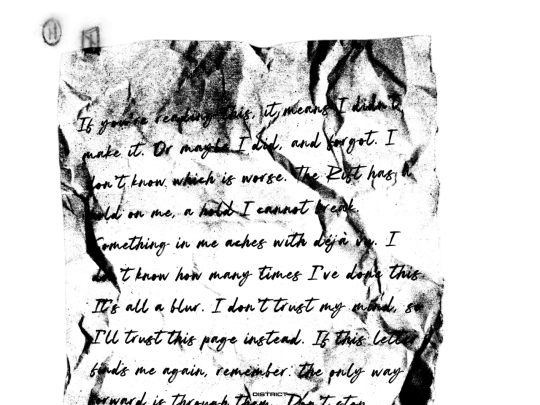 If you're reading this, it means I didn't
make it. Or maybe I did, and forgot. I
don't know which is worse. The Rift has a
hold on me, a hold I cannot break.
Something in me aches with déjà vu. I
don't know how many times I've done this.
It's all a blur. I don't trust my mind, so
I'll trust this page instead. If this letter
finds me again, remember: the only way
forward is through them. Don't stop
DISTRICT